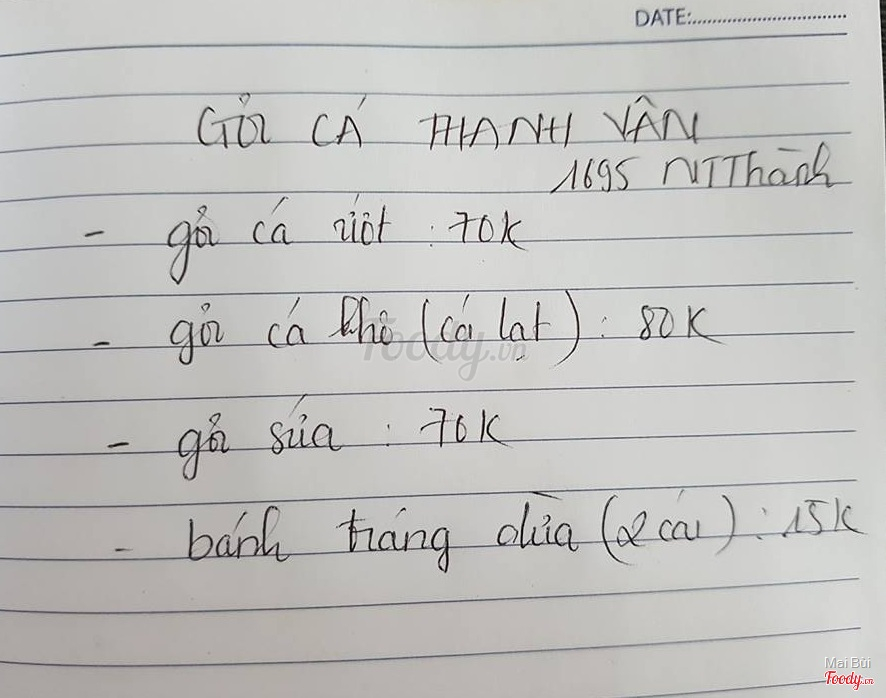 DATE:
GỎI CÁ THANH VÂN
1695 NTThành
- gỏi cá ướt : 70K
- gỏi cá khô (cá lạt) : 80K
- gỏi sứa : 70K
- bánh tráng dừa (2 cái) : 15K
Foody.vn
Mai Bùi
Foody.vn